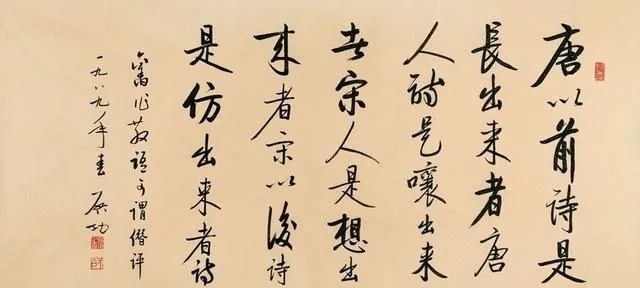 唐以前詩是
長出来者唐
人詩是嚷出来
者宋人是想出
来者宋以後詩
是仿出来者詩
舊作 語可謂僭評
一九八九年春 啟功